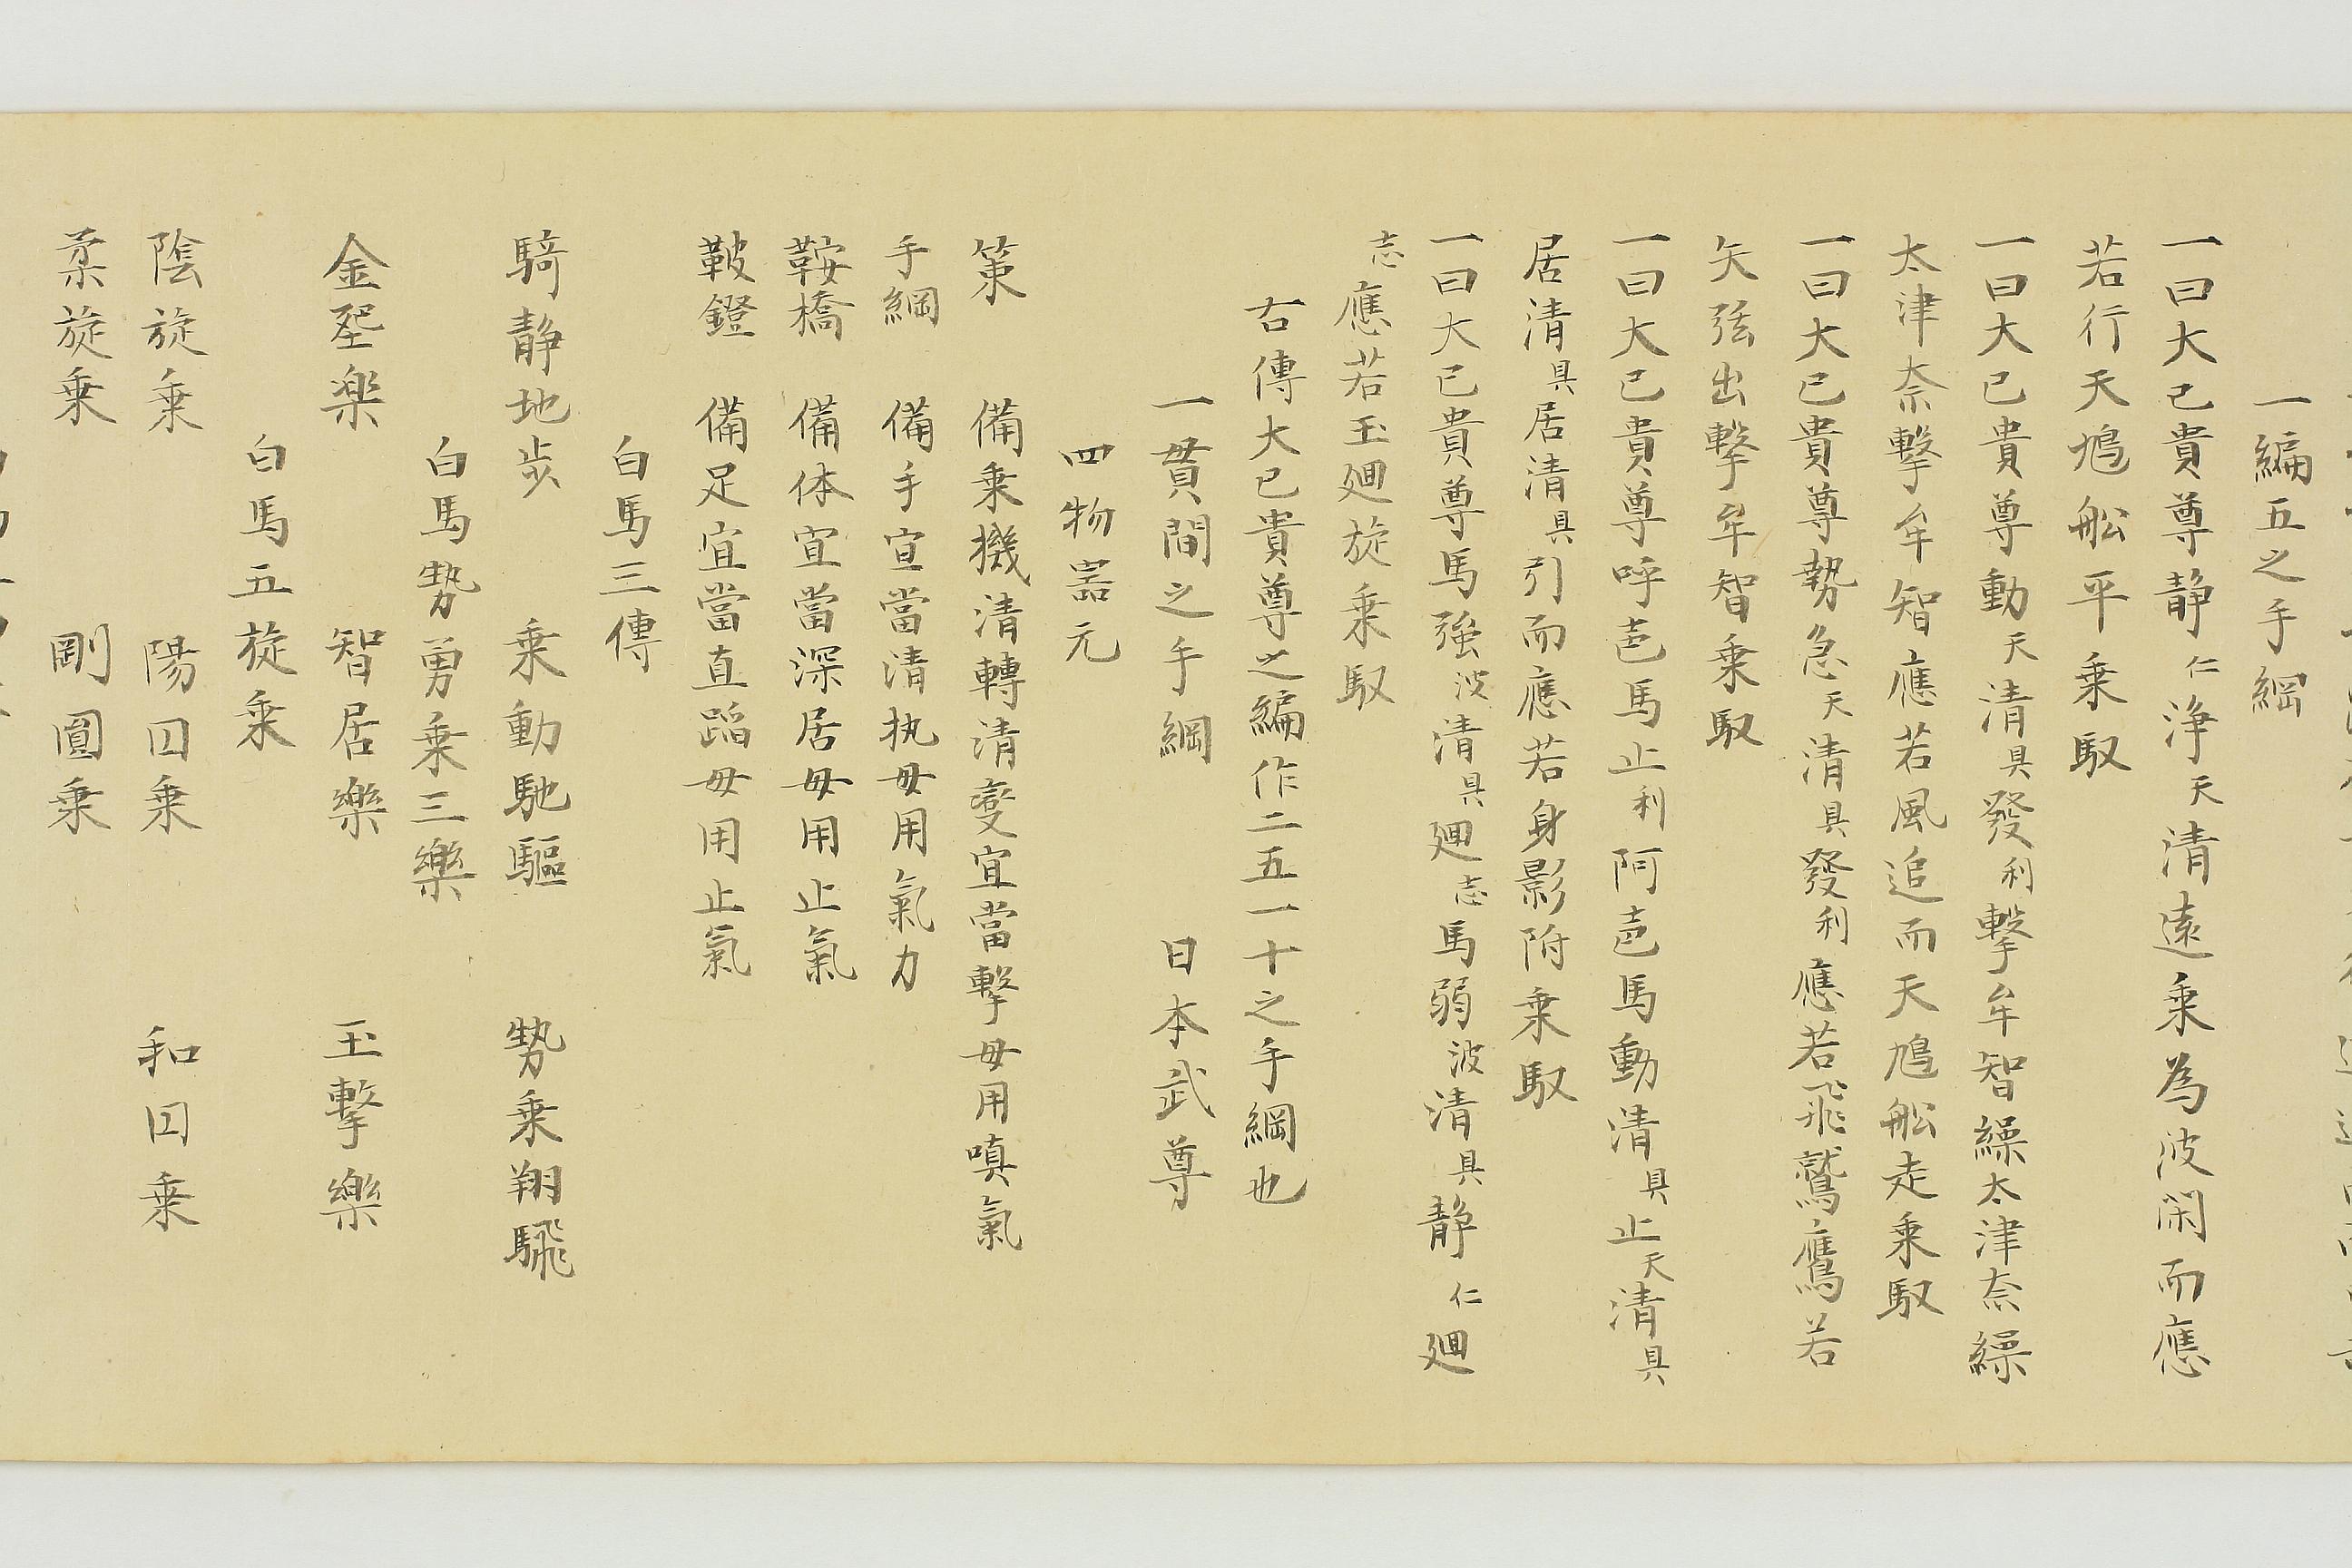 一編五之手綱
一曰大已貴尊静仁浄天清遠乗為波閑而應
若行天鳩舩平乗馭
一曰大已貴尊動天清具發利撃牟智繰太津奈繰
太津奈撃牟智應若風追而天鳩舩走乗馭
一曰大已貴尊勢急天清具發利應若飛鷲鷹若
矢弦出撃牟智乗馭
一曰大已貴尊呼芭馬止利阿芭馬動清具止天清具
居清具居清具引而應若身影附乗馭
一曰大已貴尊馬強波清具廻志馬弱波清具静仁廻
志應若玉廻旋乗馭
右傳大已貴尊之編作二五一十之手綱也
一貫間之手綱 日本武尊
四物噐元
策 備乗機清轉清變宜當撃毋用嗔氣
手綱 備手宜當清执毋用氣力
鞍橋 備体宜當深居毋用止氣
鞁鐙 備足宜當直蹈毋用止氣
白馬三傳
騎静地歩 乗動馳驅 勢乗翔
白馬勢勇乗三樂
金 楽 智居樂 玉撃樂
白馬五旋乗
陰旋乗 陽囙乗 和囙乗
柔旋乗 剛圓乗